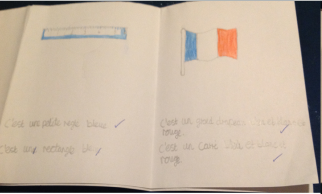 C'est une petite règle bleue
C'est un rectangle
C'est un grand drapeau
rouge.
C'est un carré bleu et blanc et
rouge